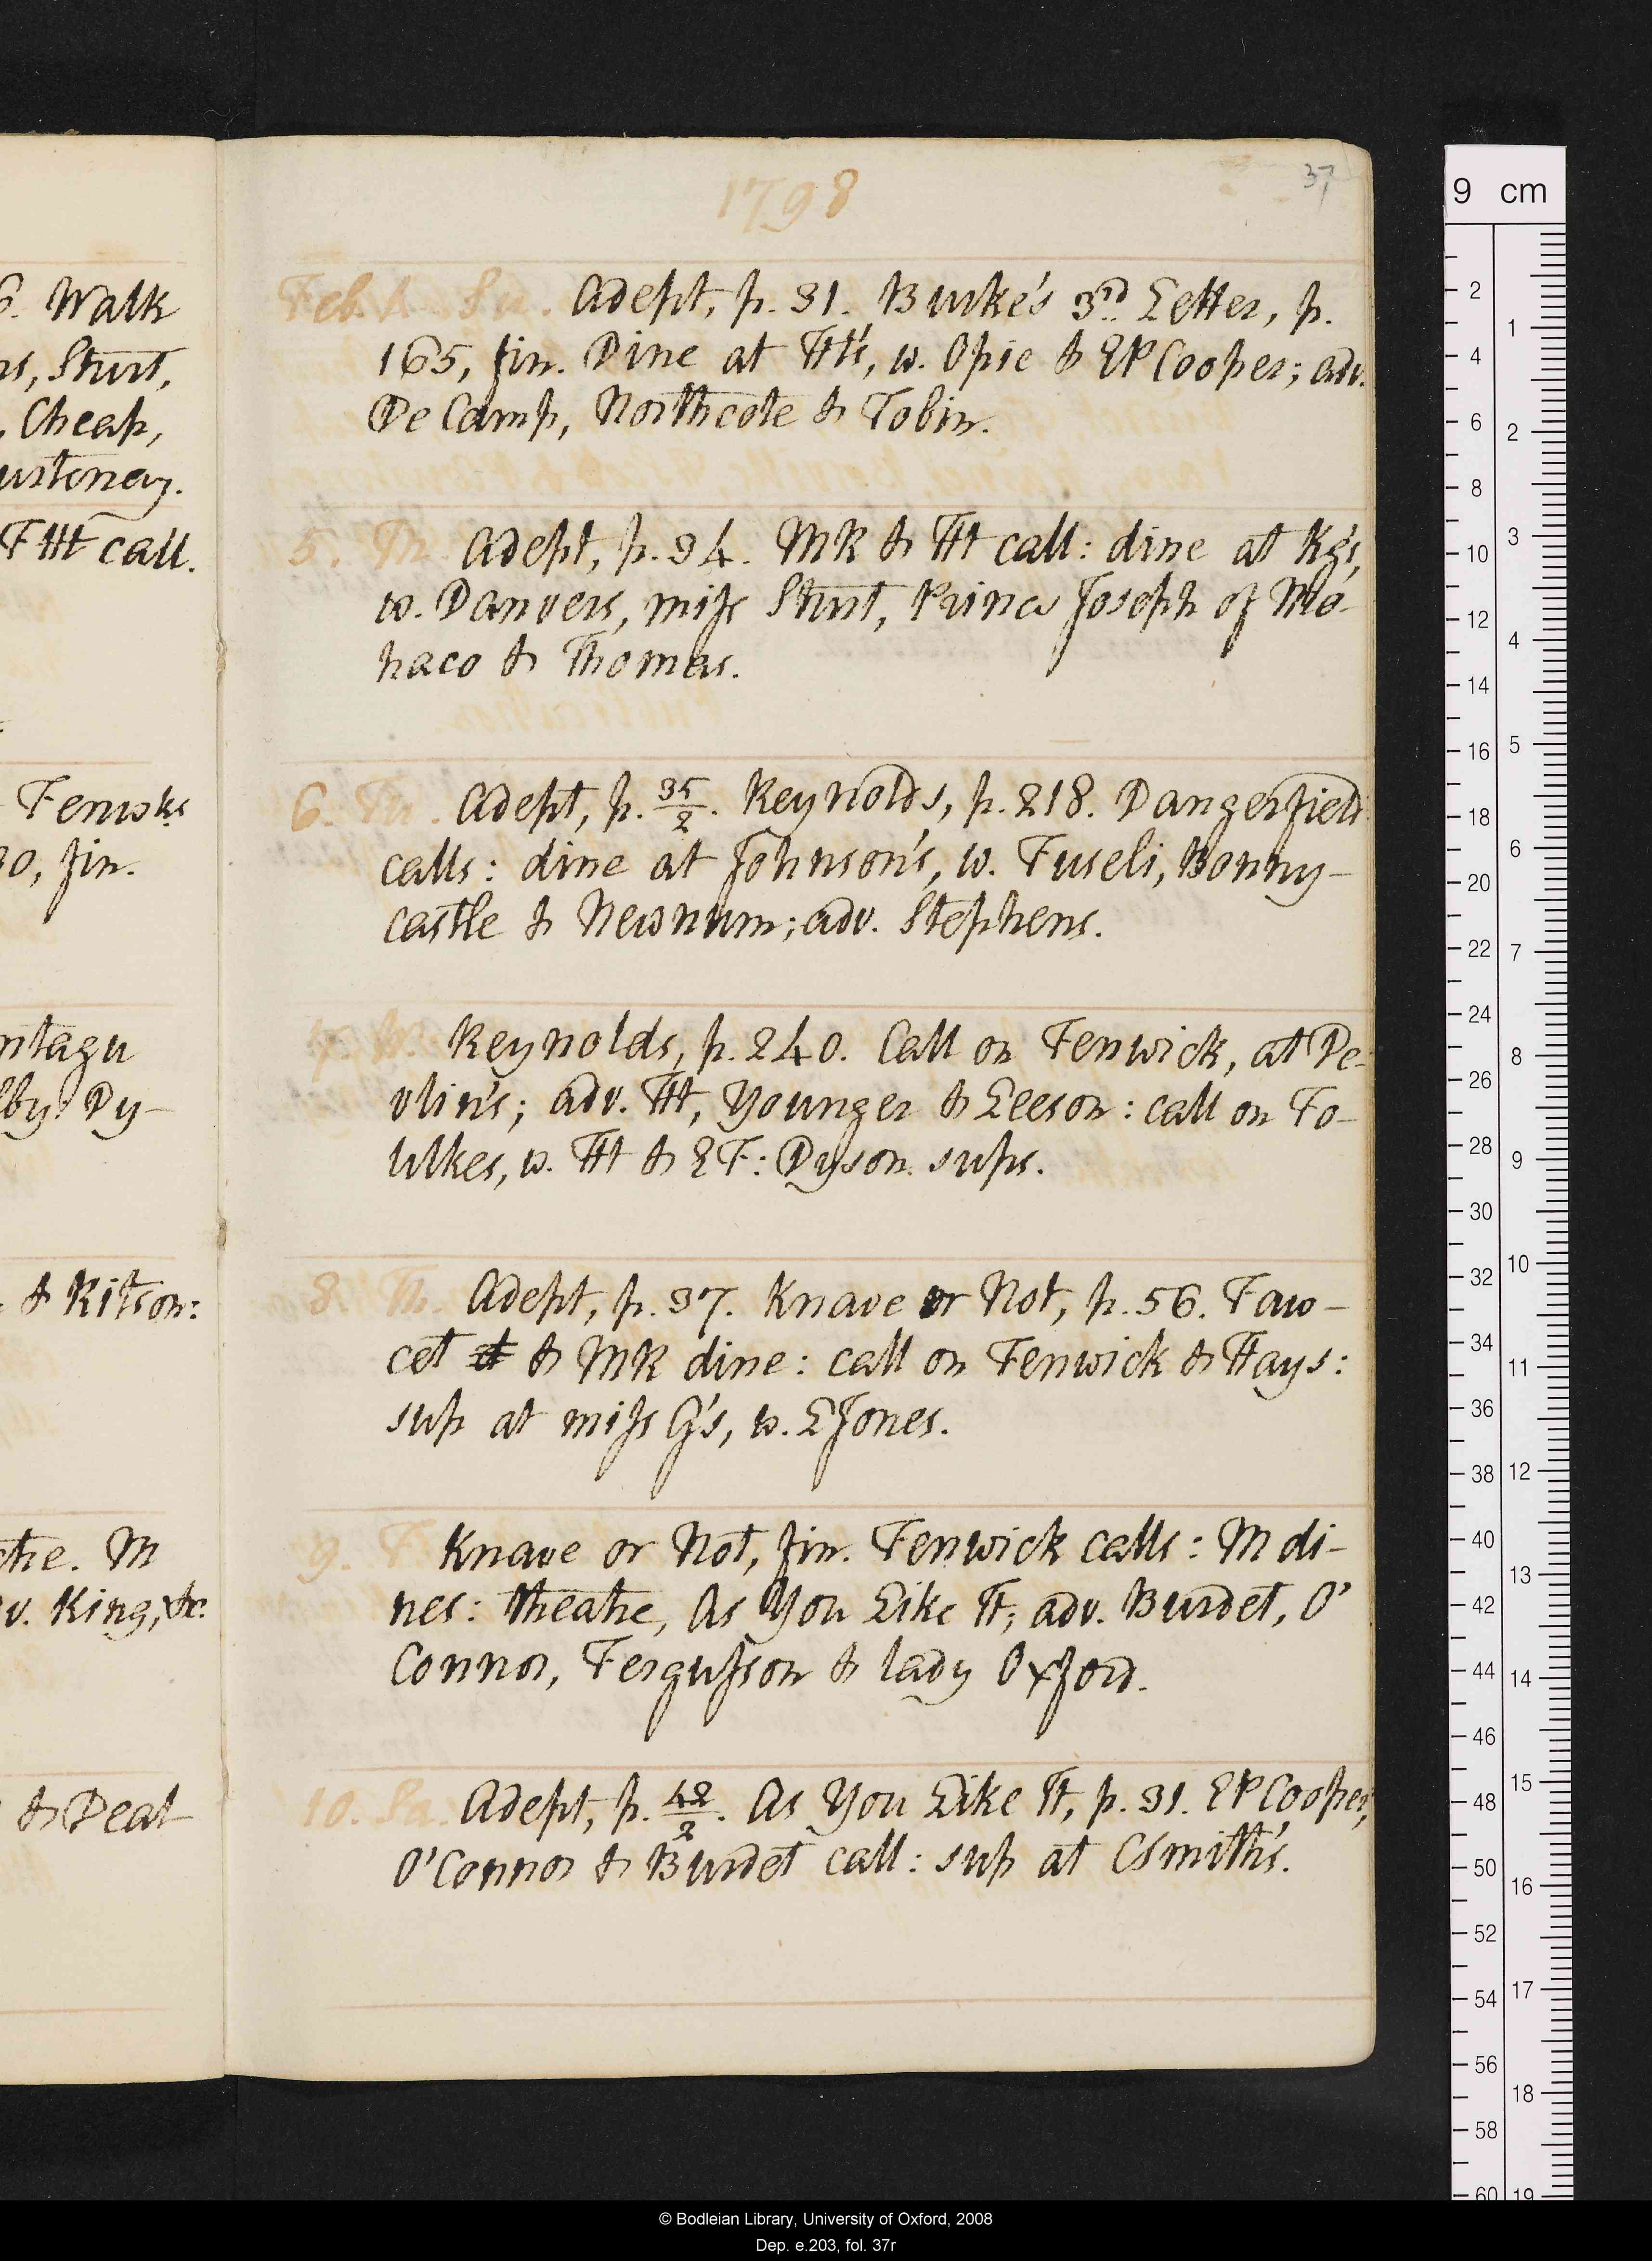 1798
37
Feb. 4. Su. Adept, p. 31. Burke's 3rd Letter, p.
165, fin. Dine at Ht's, w. Opie & EPCooper; adv.
De Camp, Northcote & Tobin.
5. M. Adept, p. 34. MR & Ht call: dine at Kg's,
w. Danvers, miss Sturt, Prince Joseph of Mo-
naco & Thomas.
6. Tu. Adept, p. 35/2. Reynolds, p. 218. Dangerfield
calls: dine at Johnson's, w. Fuseli, Bonny-
castle & Newnum; adv. Stephens.
7. W. Reynolds, p. 240. Call on Fenwick, at De-
vlin's; adv. Ht, Younger & Leeson: call on Fo-
ulkes, w. Ht & EF: Dyson sups.
8. Th. Adept, p. 37. Knave or Not, p. 56. Faw-
cet & MR dine: call on Fenwick & Hays:
sup at miss G's, w. LJones.
9. F. Knave or Not, fin. Fenwick calls: M di-
nes: theatre, As You Like It; adv. Burdet, O'
Connor, Fergusson & lady Oxford.
10. Sa. Adept, p. 42/2. As You Like It, p. 31. EPCooper,
O'Connor & Burdet call: sup at CSmith's.
. Walk
s, Sturt,
, Cheap,
ustenay.
FHt call.
Fenwks
0, fin.
ntagu
lby Dy-
& Ritson:
tre. M
v. King, &c.
& Peat
9 cm
2
4
6
8
10
12
14
16
18
20
22
24
26
28
30
32
34
36
38
40
42
44
46
48
50
52
54
56
58
60
1
2
3
4
5
6
7
8
9
10
11
12
13
14
15
16
17
18
19
© Bodleian Library, University of Oxford, 2008
Dep. e.203, fol. 37r